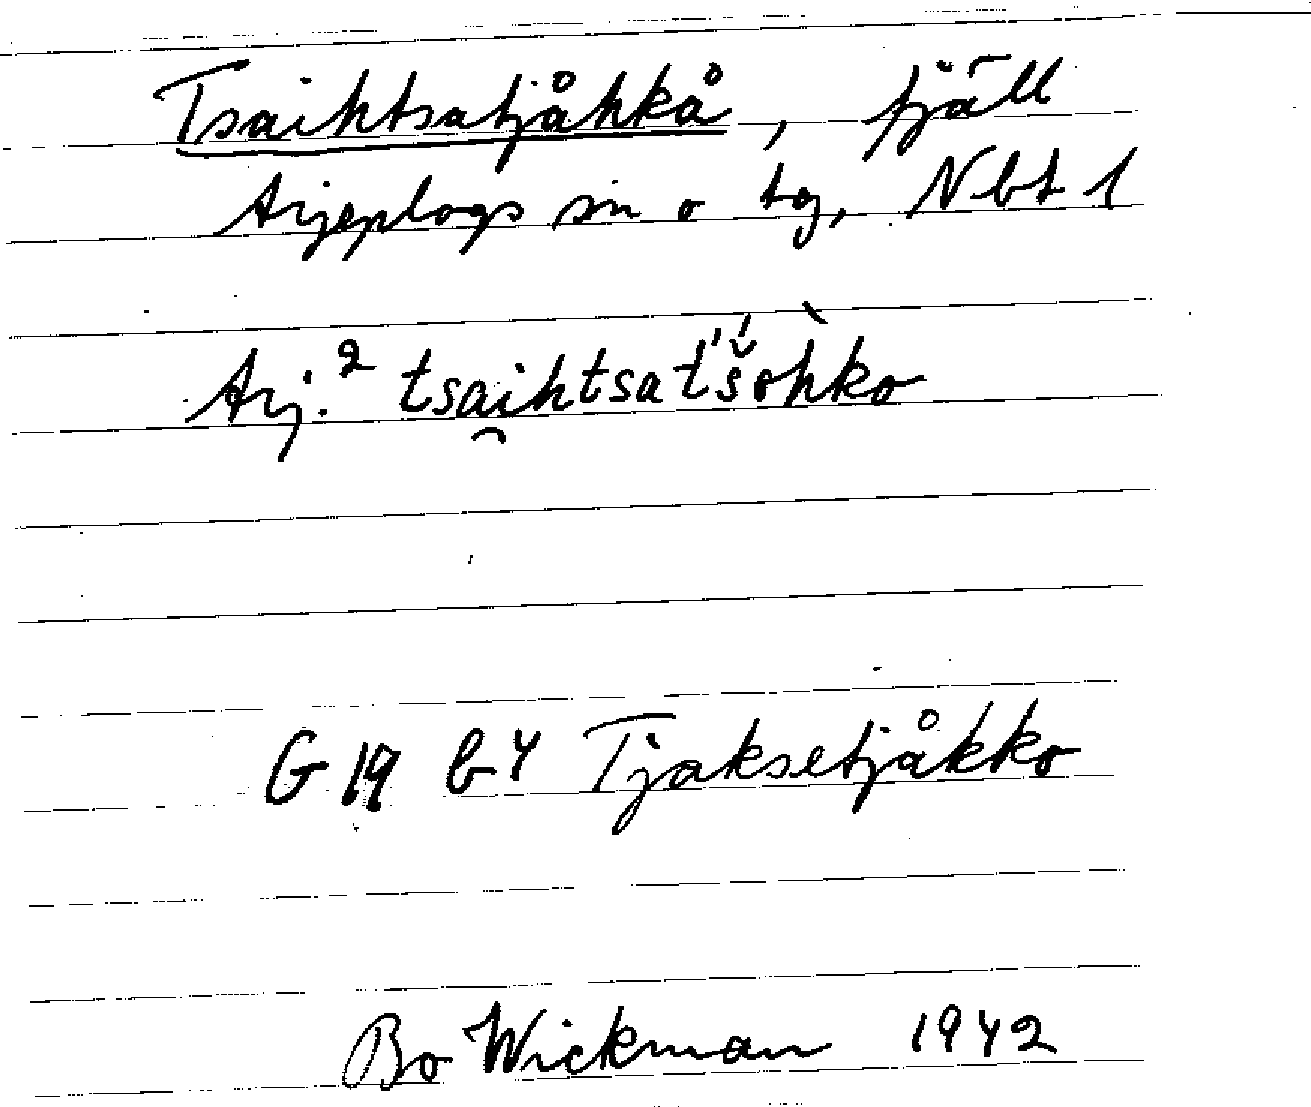 Tsaihtsatjåhkå, fjäll
Arjeplogs sn o tg, Nbt l
Arj.² tsai̯htsat́š́oh̀ko
G 19 b 4 Tjaksetjåkko
Bo Wickman 1942